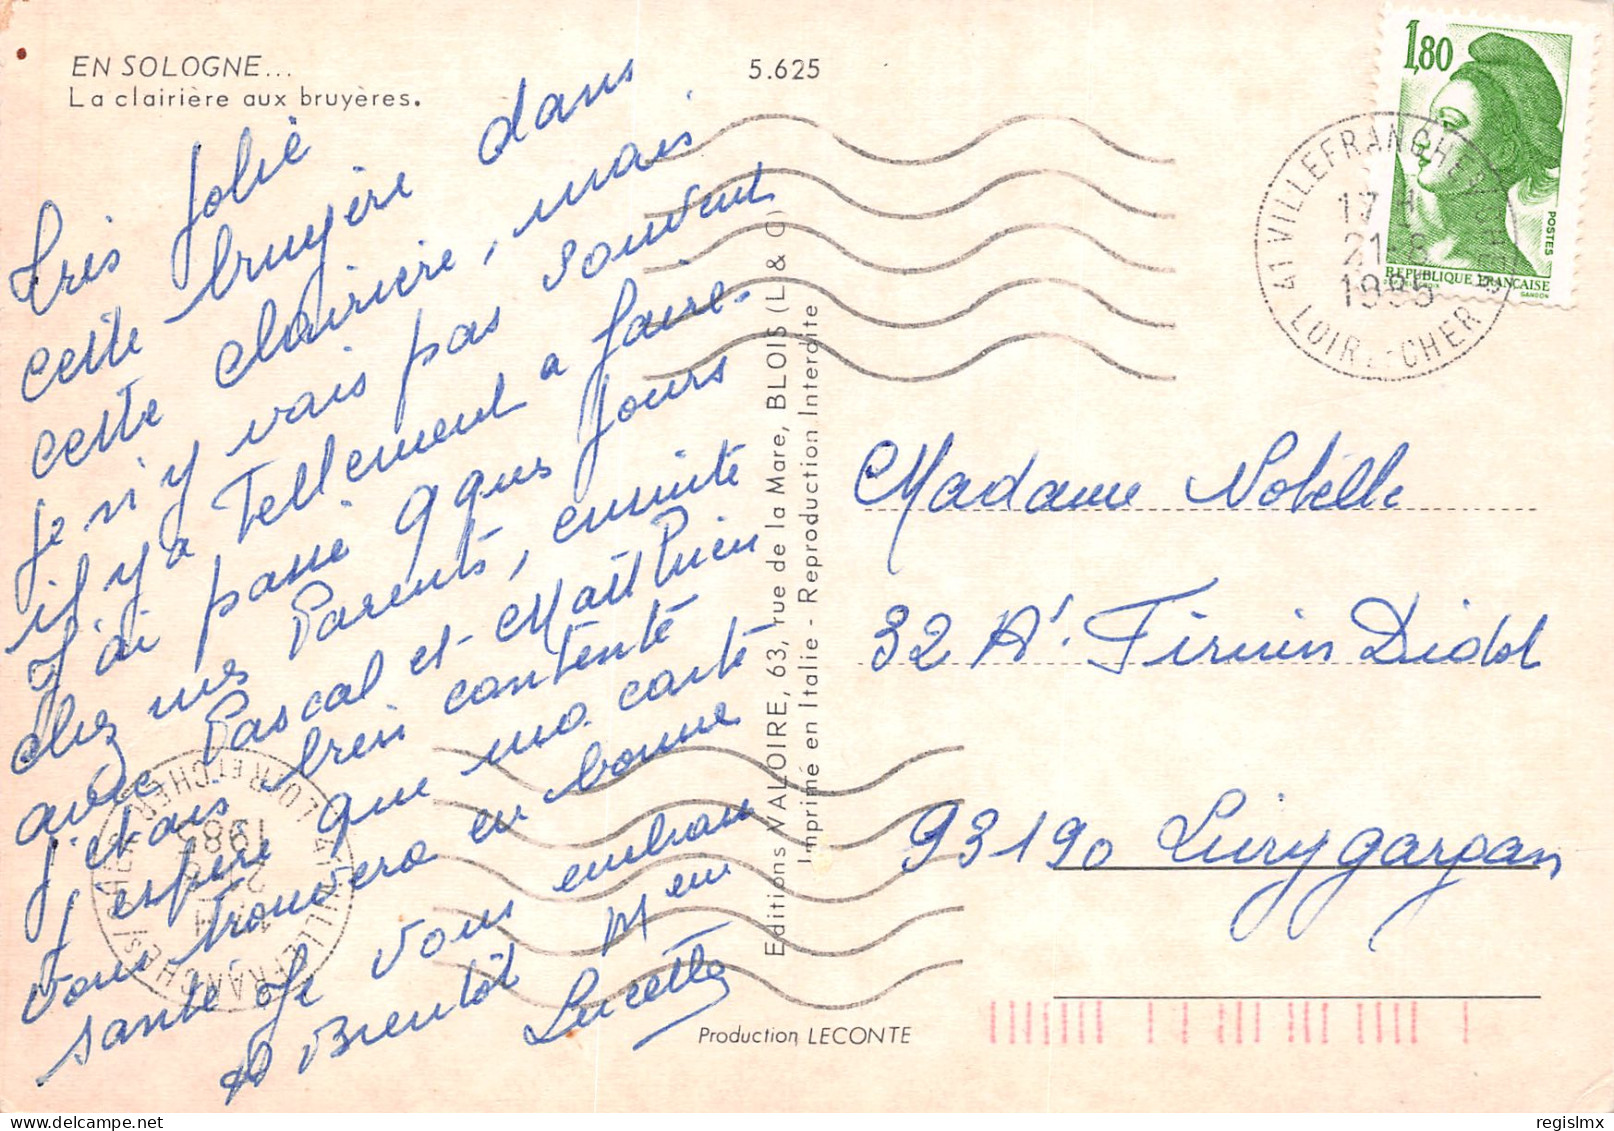 EN SOLOGNE...
La clairière aux bruyères.
5.625
1,80
POSTES
REPUBLIQUE FRANÇAISE
GANDON
41 VILLEFRANCHE S/CHER
LOIR-ET-CHER
17 H
21-8
1985
très jolie
cette bruyère dans
cette clairière, mais
je n'y vais pas souvent
il y a tellement a faire.
J'ai passé qques jours
chez mes Parents, ensuite
avec Pascal et Matthieu
j'étais bien contente
J'espère que ma carte
vous trouvera en bonne
santé Je vous embrasse
A Bientôt
Lucette
Editions VALOIRE, 63, rue de la Mare, BLOIS (L & C)
Imprimé en Italie - Reproduction Interdite
Madame Nobelle
32 Firmin Didot
93190 Livry gargan
Production LECONTE
regislmx